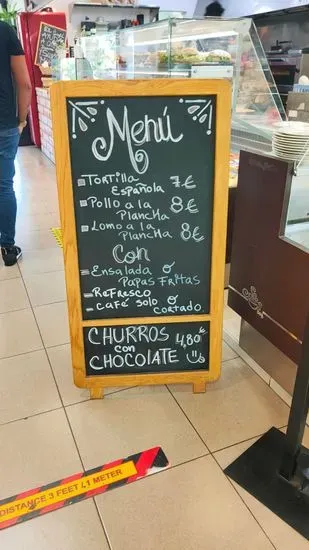 Menú
Tortilla
Española 7€
Pollo a la
Plancha 8€
Lomo a la
Plancha 8€
Con
Ensalada ó
Papas Fritas
Refresco
Café solo ó
cortado
CHURROS 4,80€
con
CHOCOLATE
DISTANCE 3 FEET 41 METER